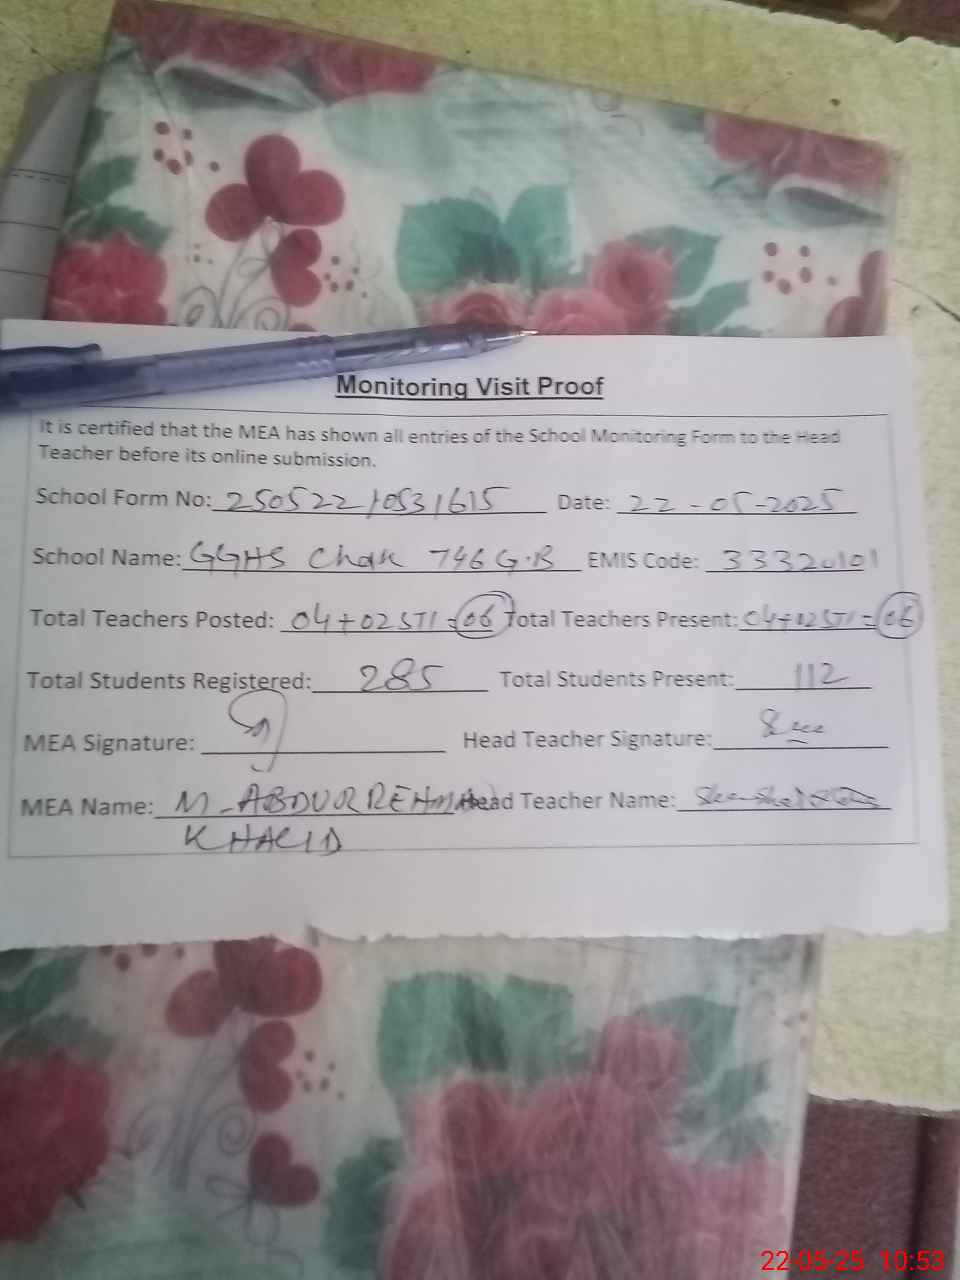 Monitoring Visit Proof
It is certified that the MEA has shown all entries of the School Monitoring Form to the Head
Teacher before its online submission.
School Form No: 25052210531615 Date: 22-05-2025
School Name: GGHS Chak 746 G.B EMIS Code: 33320101
Total Teachers Posted: 04+02STI=06 Total Teachers Present: 04+02STI=06
Total Students Registered: 285 Total Students Present: 112
MEA Signature: Head Teacher Signature:
MEA Name: M-ABDUR REHMAN Head Teacher Name:
KHALID
22-05-25 10:53